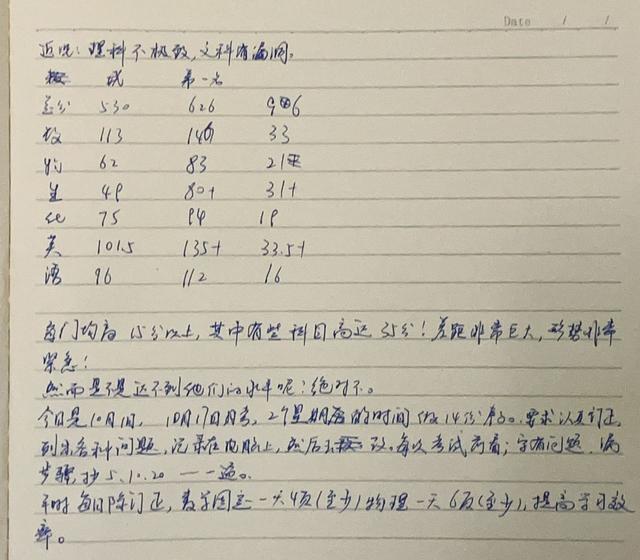 Date / /
近况：理科不极致，文科有漏洞。
我 第一名
总分 530 626 96
数 113 146 33
物 62 83 21
生 49 80+ 31+
化 75 94 19
英 101.5 135+ 33.5+
语 96 112 16
每门均高 15分以上，其中有些科目高达 35分！差距非常巨大，形势非常
紧急！
然而是不是达不到他们的水平呢？绝对不。
今日是10月1日， 10月17日月考，2个星期多的时间 做14份卷子。要求认真订正，
列出各科问题，记录在电脑上，然后 改。每次考试前看；字有问题、漏
步骤，抄5、10、20 一一遍。
平时每日除订正，数学固定一天4页(至少)物理一天6页(至少)，提高学习效
率。